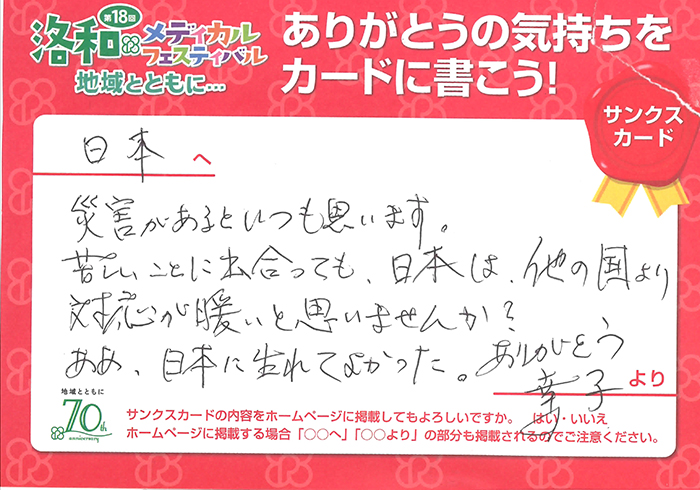 第18回
洛和メディカル
フェスティバル
地域とともに…
ありがとうの気持ちを
カードに書こう!
サンクス
カード
日本へ
災害があるといつも思います。
苦しいことに出合っても、日本は、他の国より
対応が暖いと思いませんか?
ああ、日本に生れてよかった。ありがとう
幸子より
地域とともに
70th
anniversary
サンクスカードの内容をホームページに掲載してもよろしいですか。 はい・いいえ
ホームページに掲載する場合「○○へ」「○○より」の部分も掲載されるのでご注意ください。